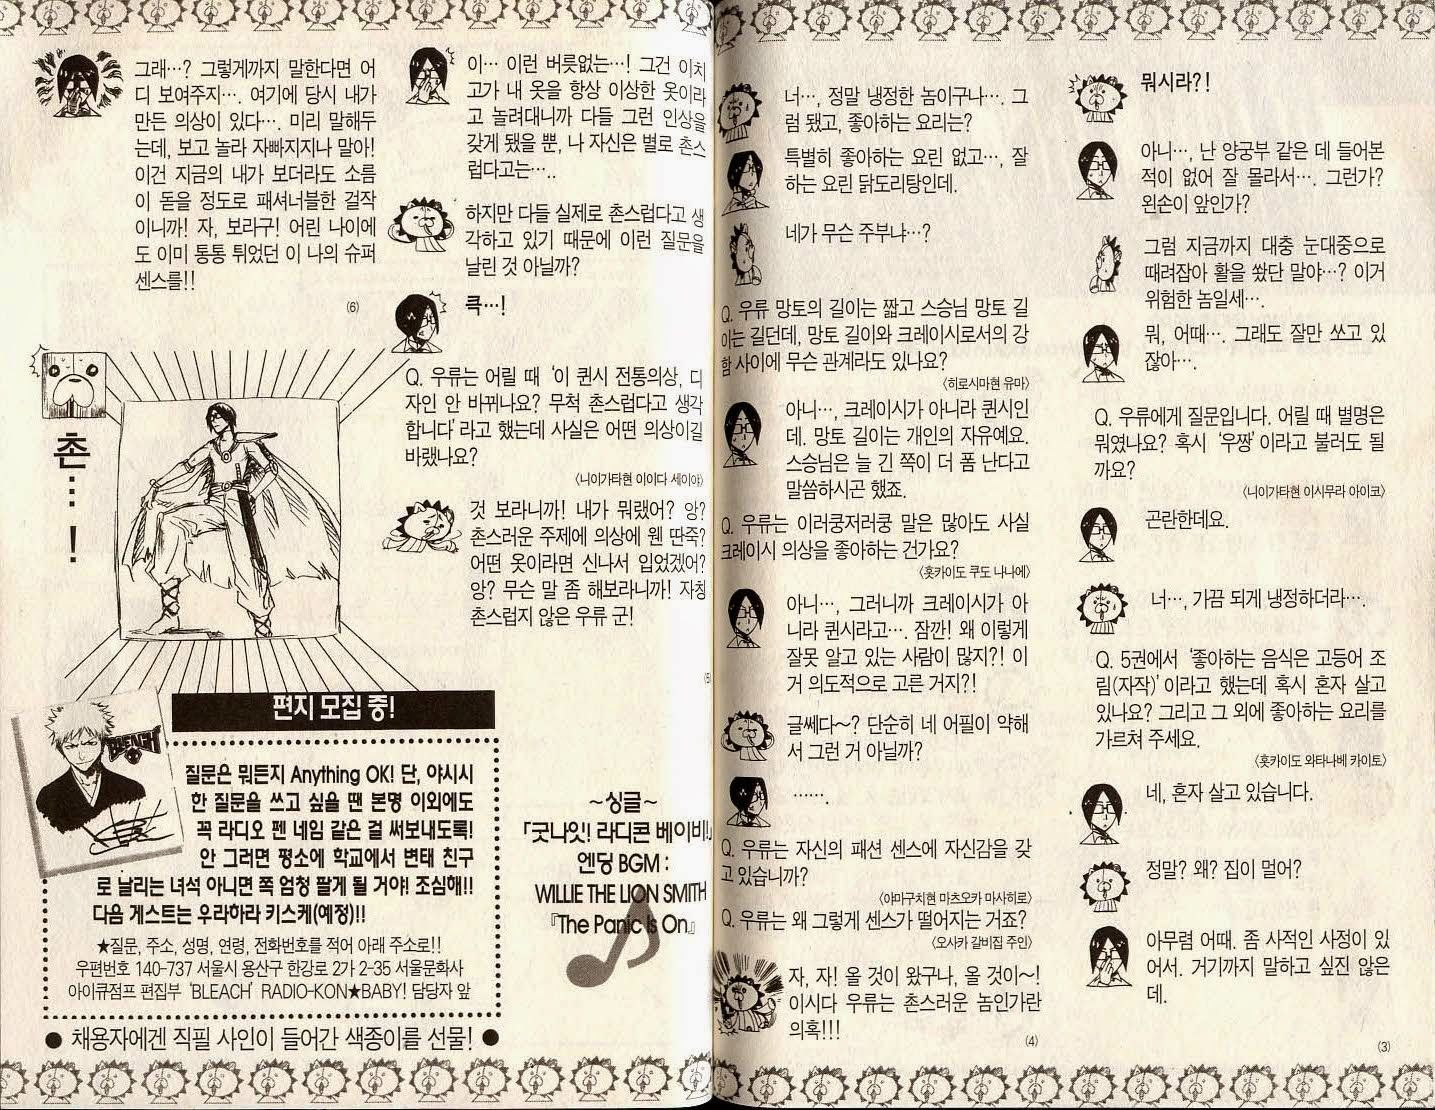 뭐시라?!
아니…, 난 양궁부 같은 데 들어본
적이 없어 잘 몰라서…. 그런가?
왼손이 앞인가?
그럼 지금까지 대충 눈대중으로
때려잡아 활을 쐈단 말야…? 이거
위험한 놈일세….
뭐, 어때…. 그래도 잘만 쏘고 있
잖아….
Q. 우류에게 질문입니다. 어릴 때 별명은
뭐였나요? 혹시 '우쨩' 이라고 불러도 될
까요?
〈니이가타현 이시무라 아이코〉
곤란한데요.
너…, 가끔 되게 냉정하더라….
Q. 5권에서 '좋아하는 음식은 고등어 조
림(자작)' 이라고 했는데 혹시 혼자 살고
있나요? 그리고 그 외에 좋아하는 요리를
가르쳐 주세요.
〈홋카이도 와타나베 카이토〉
네, 혼자 살고 있습니다.
정말? 왜? 집이 멀어?
아무렴 어때. 좀 사적인 사정이 있
어서. 거기까지 말하고 싶진 않은
데.
(3)
너…, 정말 냉정한 놈이구나…. 그
럼 됐고, 좋아하는 요리는?
특별히 좋아하는 요린 없고…, 잘
하는 요린 닭도리탕인데.
네가 무슨 주부냐…?
Q. 우류 망토의 길이는 짧고 스승님 망토 길
이는 길던데, 망토 길이와 크레이시로서의 강
함 사이에 무슨 관계라도 있나요?
〈히로시마현 유마〉
아니…, 크레이시가 아니라 퀸시인
데. 망토 길이는 개인의 자유예요.
스승님은 늘 긴 쪽이 더 폼 난다고
말씀하시곤 했죠.
Q. 우류는 이러쿵저러쿵 말은 많아도 사실
크레이시 의상을 좋아하는 건가요?
〈홋카이도 쿠도 나나에〉
아니…, 그러니까 크레이시가 아
니라 퀸시라고…. 잠깐! 왜 이렇게
잘못 알고 있는 사람이 많지?! 이
거 의도적으로 고른 거지?!
글쎄다~? 단순히 네 어필이 약해
서 그런 거 아닐까?
…….
Q. 우류는 자신의 패션 센스에 자신감을 갖
고 있습니까?
〈야마구치현 마츠오카 마사히로〉
Q. 우류는 왜 그렇게 센스가 떨어지는 거죠?
〈오사카 갈비집 주인〉
자, 자! 올 것이 왔구나, 올 것이~!
이시다 우류는 촌스러운 놈인가란
의혹!!!
(4)
이… 이런 버릇없는…! 그건 이치
고가 내 옷을 항상 이상한 옷이라
고 놀려대니까 다들 그런 인상을
갖게 됐을 뿐, 나 자신은 별로 촌스
럽다고는….
하지만 다들 실제로 촌스럽다고 생
각하고 있기 때문에 이런 질문을
날린 것 아닐까?
큭…!
Q. 우류는 어릴 때 '이 퀸시 전통의상, 디
자인 안 바뀌나요? 무척 촌스럽다고 생각
합니다' 라고 했는데 사실은 어떤 의상이길
바랬나요?
〈니이가타현 이이다 세이야〉
것 보라니까! 내가 뭐랬어? 앙?
촌스러운 주제에 의상에 웬 딴죽?
어떤 옷이라면 신나서 입었겠어?
앙? 무슨 말 좀 해보라니까! 자칭
촌스럽지 않은 우류 군!
(5)
~싱글~
「굿나잇! 라디콘 베이비!」
엔딩 BGM :
WILLIE THE LION SMITH
『The Panic Is On』
그래…? 그렇게까지 말한다면 어
디 보여주지…. 여기에 당시 내가
만든 의상이 있다…. 미리 말해두
는데, 보고 놀라 자빠지지나 말아!
이건 지금의 내가 보더라도 소름
이 돋을 정도로 패셔너블한 걸작
이니까! 자, 보라구! 어린 나이에
도 이미 통통 튀었던 이 나의 슈퍼
센스를!!
(6)
촌…!
편지 모집 중!
BLEACH
질문은 뭐든지 Anything OK! 단, 야시시
한 질문을 쓰고 싶을 땐 본명 이외에도
꼭 라디오 펜 네임 같은 걸 써보내도록!
안 그러면 평소에 학교에서 변태 친구
로 날리는 녀석 아니면 쪽 엄청 팔게 될 거야! 조심해!!
다음 게스트는 우라하라 키스케(예정)!!
★질문, 주소, 성명, 연령, 전화번호를 적어 아래 주소로!!
우편번호 140-737 서울시 용산구 한강로 2가 2-35 서울문화사
아이큐점프 편집부 'BLEACH' RADIO-KON★BABY! 담당자 앞
● 채용자에겐 직필 사인이 들어간 색종이를 선물! ●